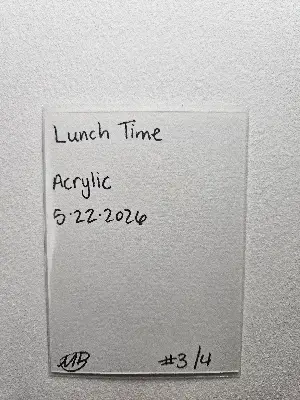 Lunch Time
Acrylic
5.22.2026
MB
#3/4